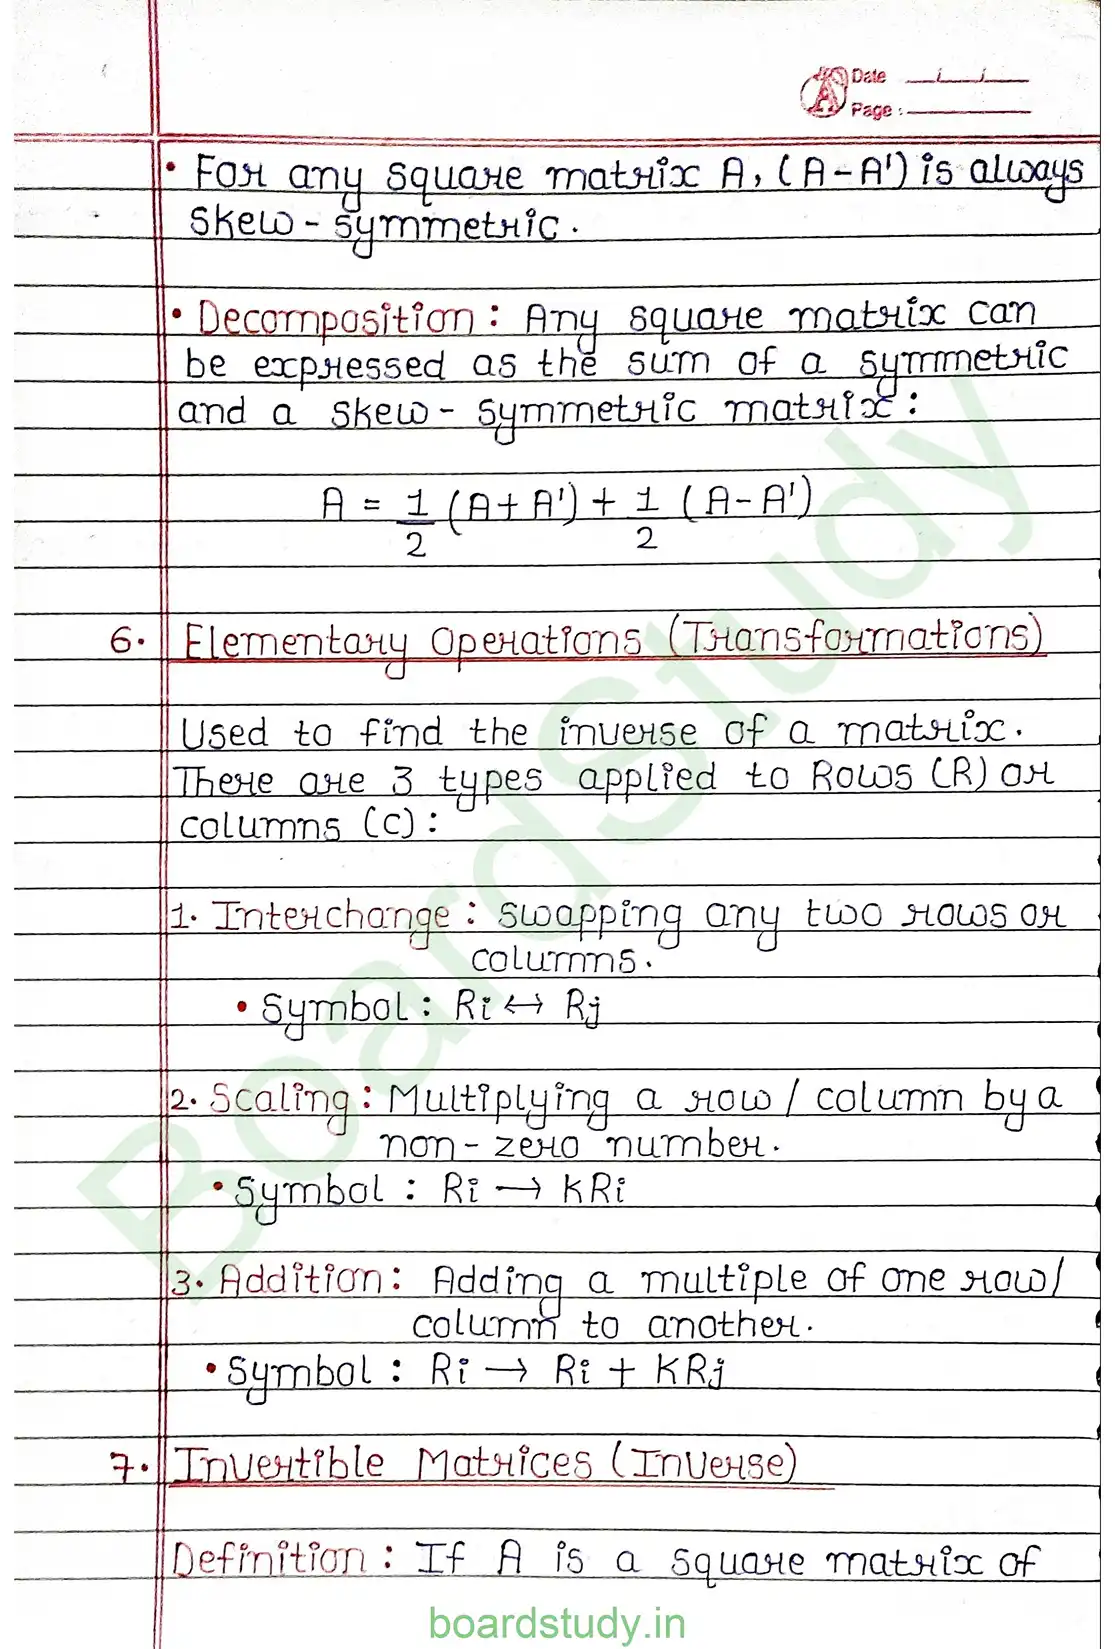 Date
Page :
• For any square matrix A, (A - A') is always
skew - symmetric.
• Decomposition : Any square matrix can
be expressed as the sum of a symmetric
and a skew - symmetric matrix :
A = 1/2 (A + A') + 1/2 (A - A')
6. Elementary Operations (Transformations)
Used to find the inverse of a matrix.
There are 3 types applied to Rows (R) or
columns (C) :
1. Interchange : swapping any two rows or
columns.
• Symbol : Ri ↔ Rj
2. Scaling : Multiplying a row / column by a
non - zero number.
• Symbol : Ri → KRi
3. Addition : Adding a multiple of one row/
column to another.
• Symbol : Ri → Ri + KRj
7. Invertible Matrices (Inverse)
Definition : If A is a square matrix of
BoardStudy
boardstudy.in